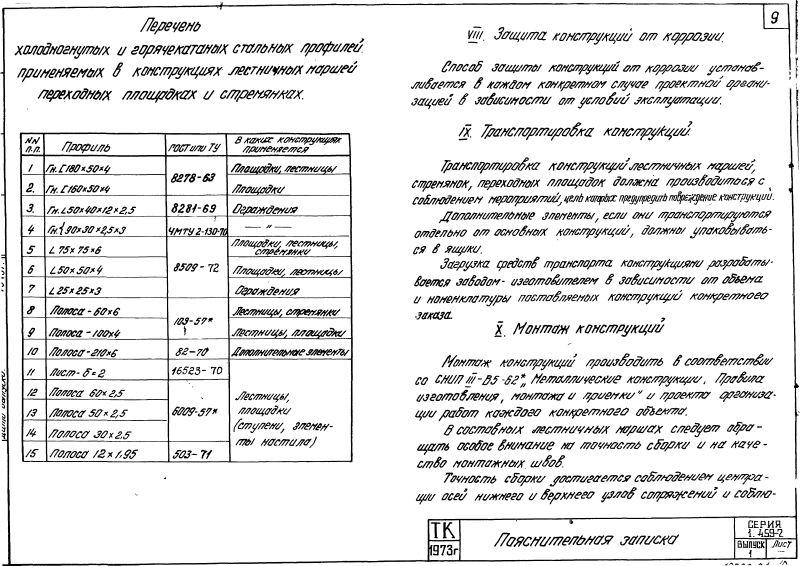 9
Перечень
холодногнутых и горячекатаных стальных профилей,
применяемых в конструкциях лестничных маршей
переходных площадках и стремянках.
NN п.п. Профиль ГОСТ или ТУ В каких конструкциях применяется
1 Гн. [ 180×50×4 8278-63 Площадки, лестницы
2. Гн. [ 160×50×4 Площадки
3. Гн. L 50×40×12×2,5 8281-69 Ограждения
4 90×30×2,5×3 ЧМТУ 2-130-70 — " —
5 L 75×75×6 8509-72 Площадки, лестницы, стремянки
6 L 50×50×4 Площадки, лестницы
7 L 25×25×3 Ограждения
8 Полоса-60×6 103-57* Лестницы, стремянки
9 Полоса-100×4 Лестницы, площадки
10 Полоса-210×6 82-70 Дополнительные элементы
11 Лист-б=2 16523-70 Лестницы, площадки (ступени, элементы настила)
12 Полоса 60×2,5 6009-57*
13 Полоса 50×2,5
14 Полоса 30×2.5
15 Полоса 12×1.95 503-71
VIII. Защита конструкций от коррозии.
Способ защиты конструкций от коррозии устанав-
ливается в каждом конкретном случае проектной органи-
зацией в зависимости от условий эксплуатации.
IX. Транспортировка конструкций.
Транспортировка конструкций лестничных маршей,
стремянок, переходных площадок должна производиться с
соблюдением мероприятий, цель которых предупредить повреждение конструкций.
Дополнительные элементы, если они транспортируются
отдельно от основных конструкций, должны упаковывать-
ся в ящики.
Загрузка средств транспорта конструкциями разрабаты-
вается заводом-изготовителем в зависимости от объема
и номенклатуры поставляемых конструкций конкретного
заказа.
X. Монтаж конструкций
Монтаж конструкций производить в соответствии
со СНИП III-В5-62*, „Металлические конструкции. Правила
изготовления, монтажа и приемки" и проекта организа-
ции работ каждого конкретного объекта.
В составных лестничных маршах следует обра-
щать особое внимание на точность сборки и на каче-
ство монтажных швов.
Точность сборки достигается соблюдением центра-
ции осей нижнего и верхнего узлов сопряжений и соблю-
ТК
1973г
Пояснительная записка
СЕРИЯ
1.459-2
ВЫПУСК Лист
1 —